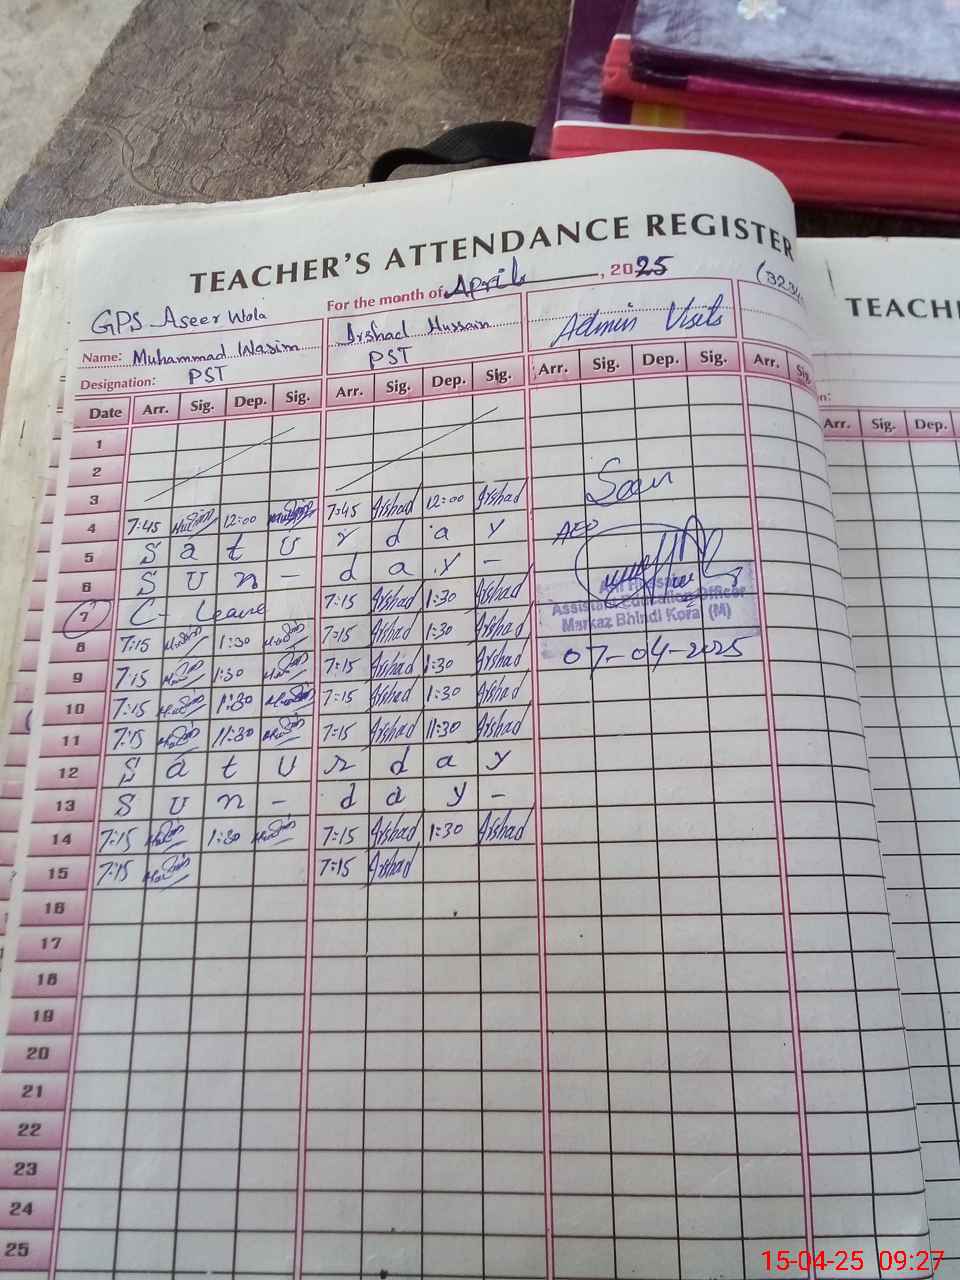 TEACHER'S ATTENDANCE REGISTER
For the month of April, 2025
GPS Aseer Wola
Name: Muhammad Wasim Arshad Hussain Admin Visits
Designation: PST PST
Date Arr. Sig. Dep. Sig. Arr. Sig. Dep. Sig. Arr. Sig. Dep. Sig. Arr. Sig.
1
2
3 Seen
4 7:45 12:00 7:45 Arshad 12:00 Arshad
5 S a t u r d a y AEO
6 S u n - d a y -
7 C- Leave 7:15 Arshad 1:30 Arshad
Assistant Education Officer
Markaz Bhindi Kora (M)
8 7:15 1:30 7:15 Arshad 1:30 Arshad
07-04-2025
9 7:15 1:30 7:15 Arshad 1:30 Arshad
10 7:15 1:30 7:15 Arshad 1:30 Arshad
11 7:15 11:30 7:15 Arshad 11:30 Arshad
12 S a t u r d a y
13 S u n - d a y -
14 7:15 1:30 7:15 Arshad 1:30 Arshad
15 7:15 7:15 Arshad
16
17
18
19
20
21
22
23
24
25
Arr. Sig. Dep.
15-04-25 09:27